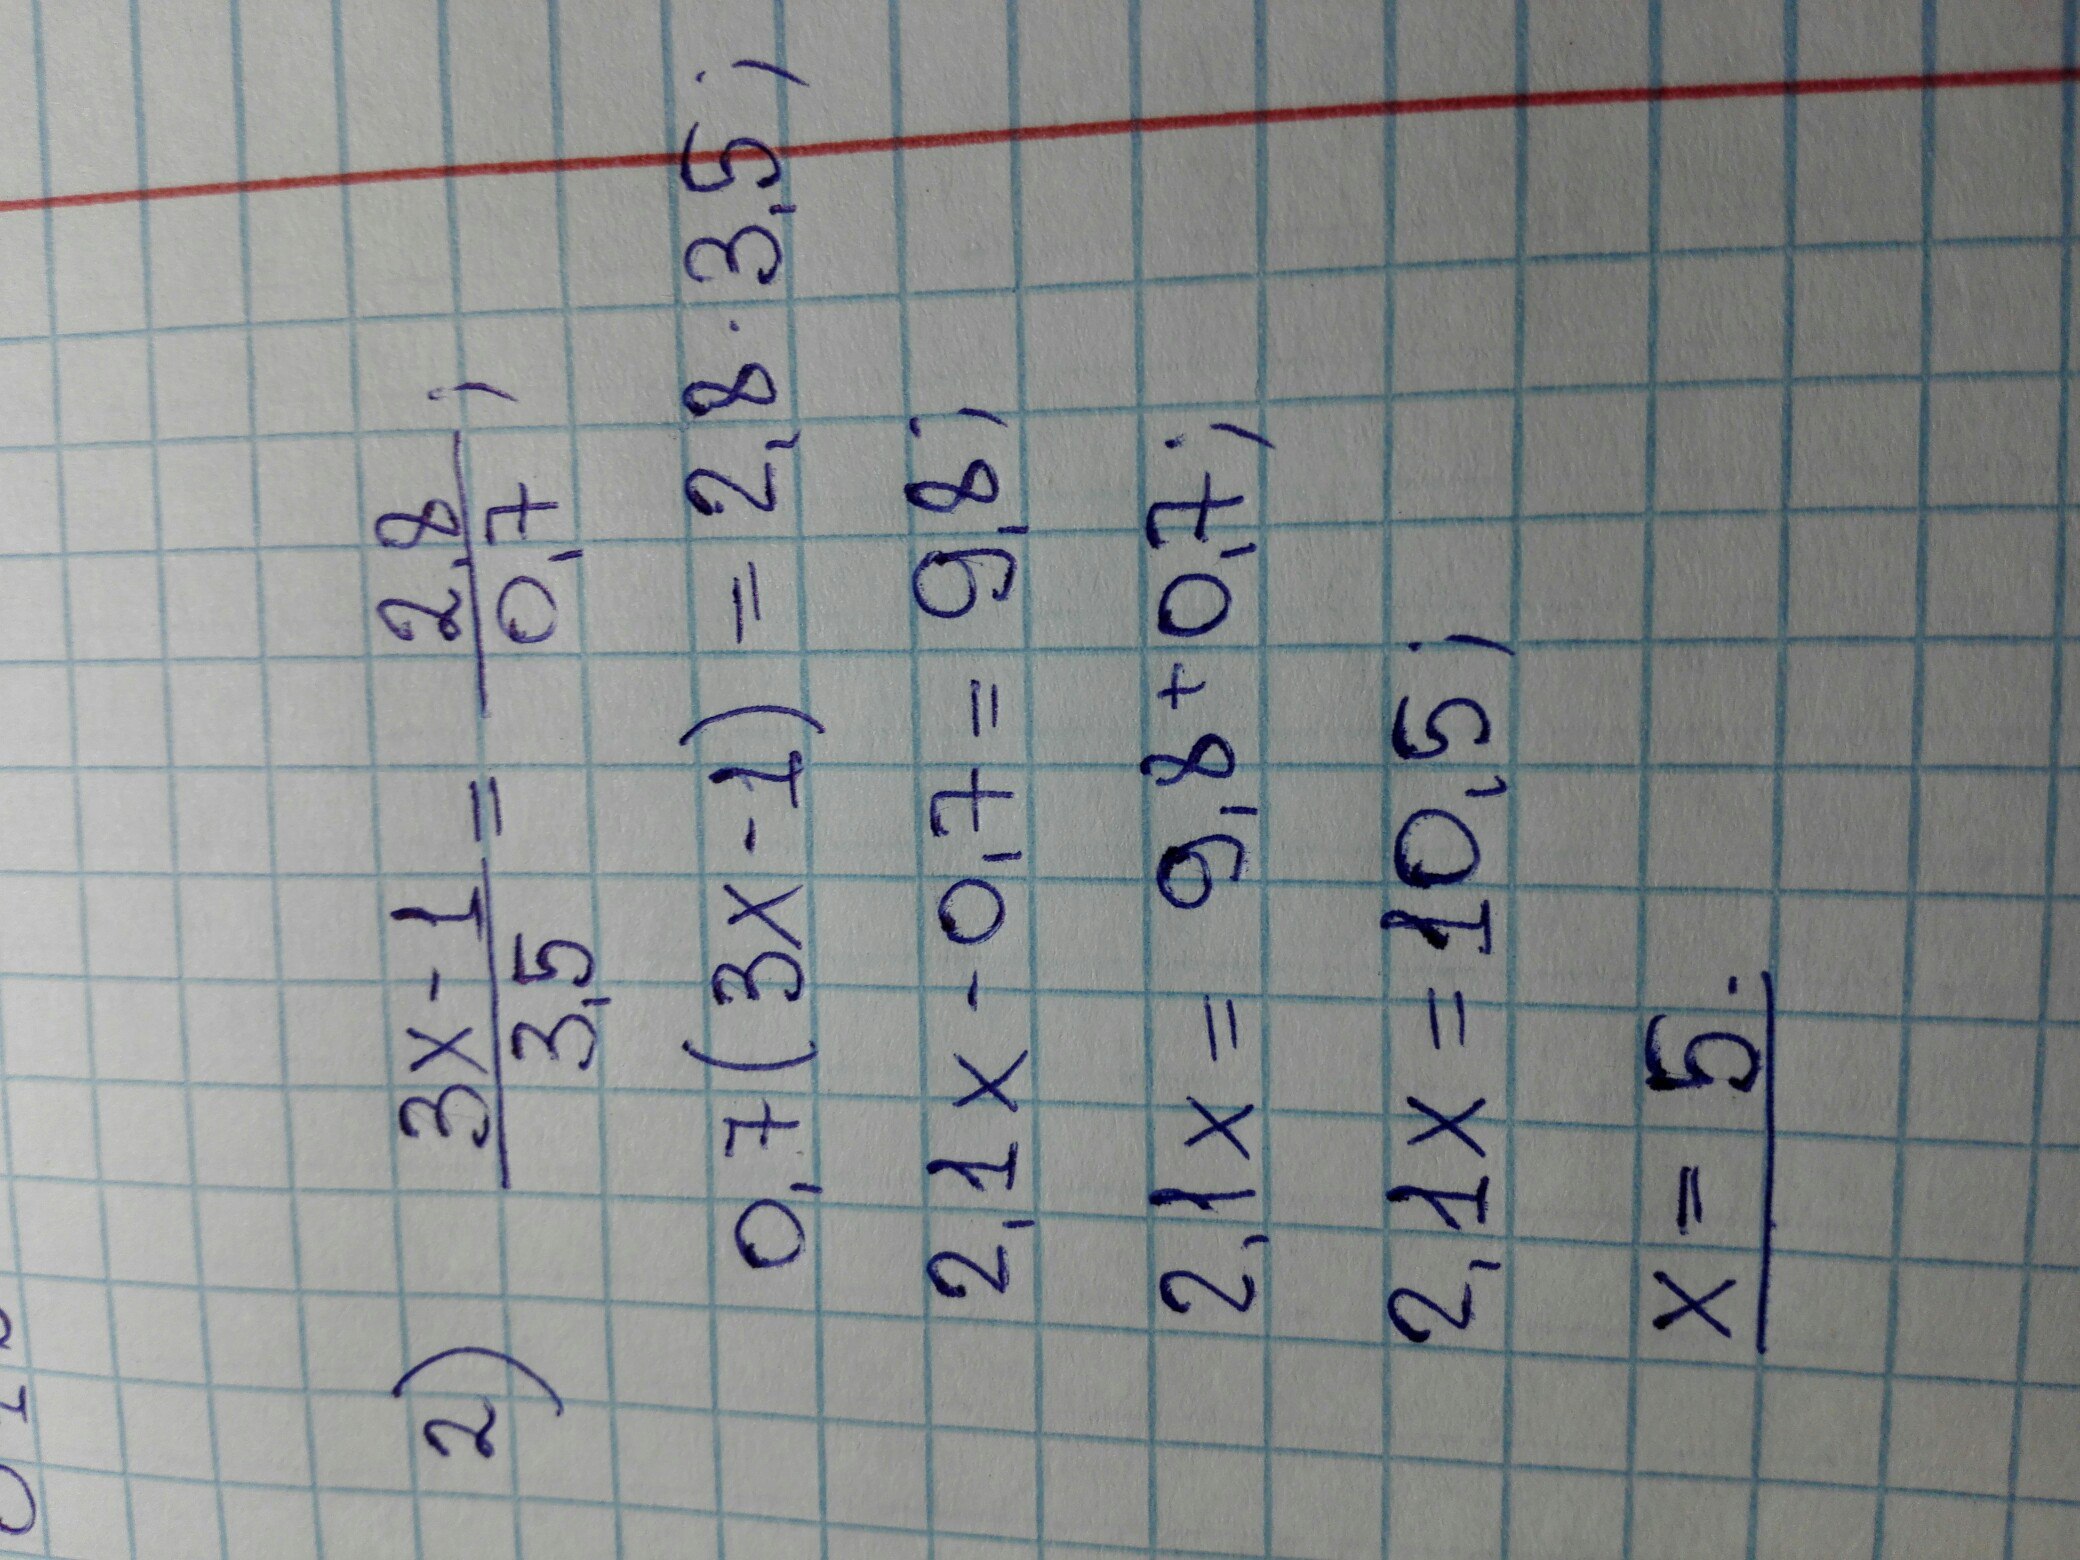 2) (3x-1)/3,5 = 2,8/0,7;
0,7(3x-1) = 2,8·3,5;
2,1x-0,7=9,8;
2,1x = 9,8+0,7;
2,1x=10,5;
x=5.